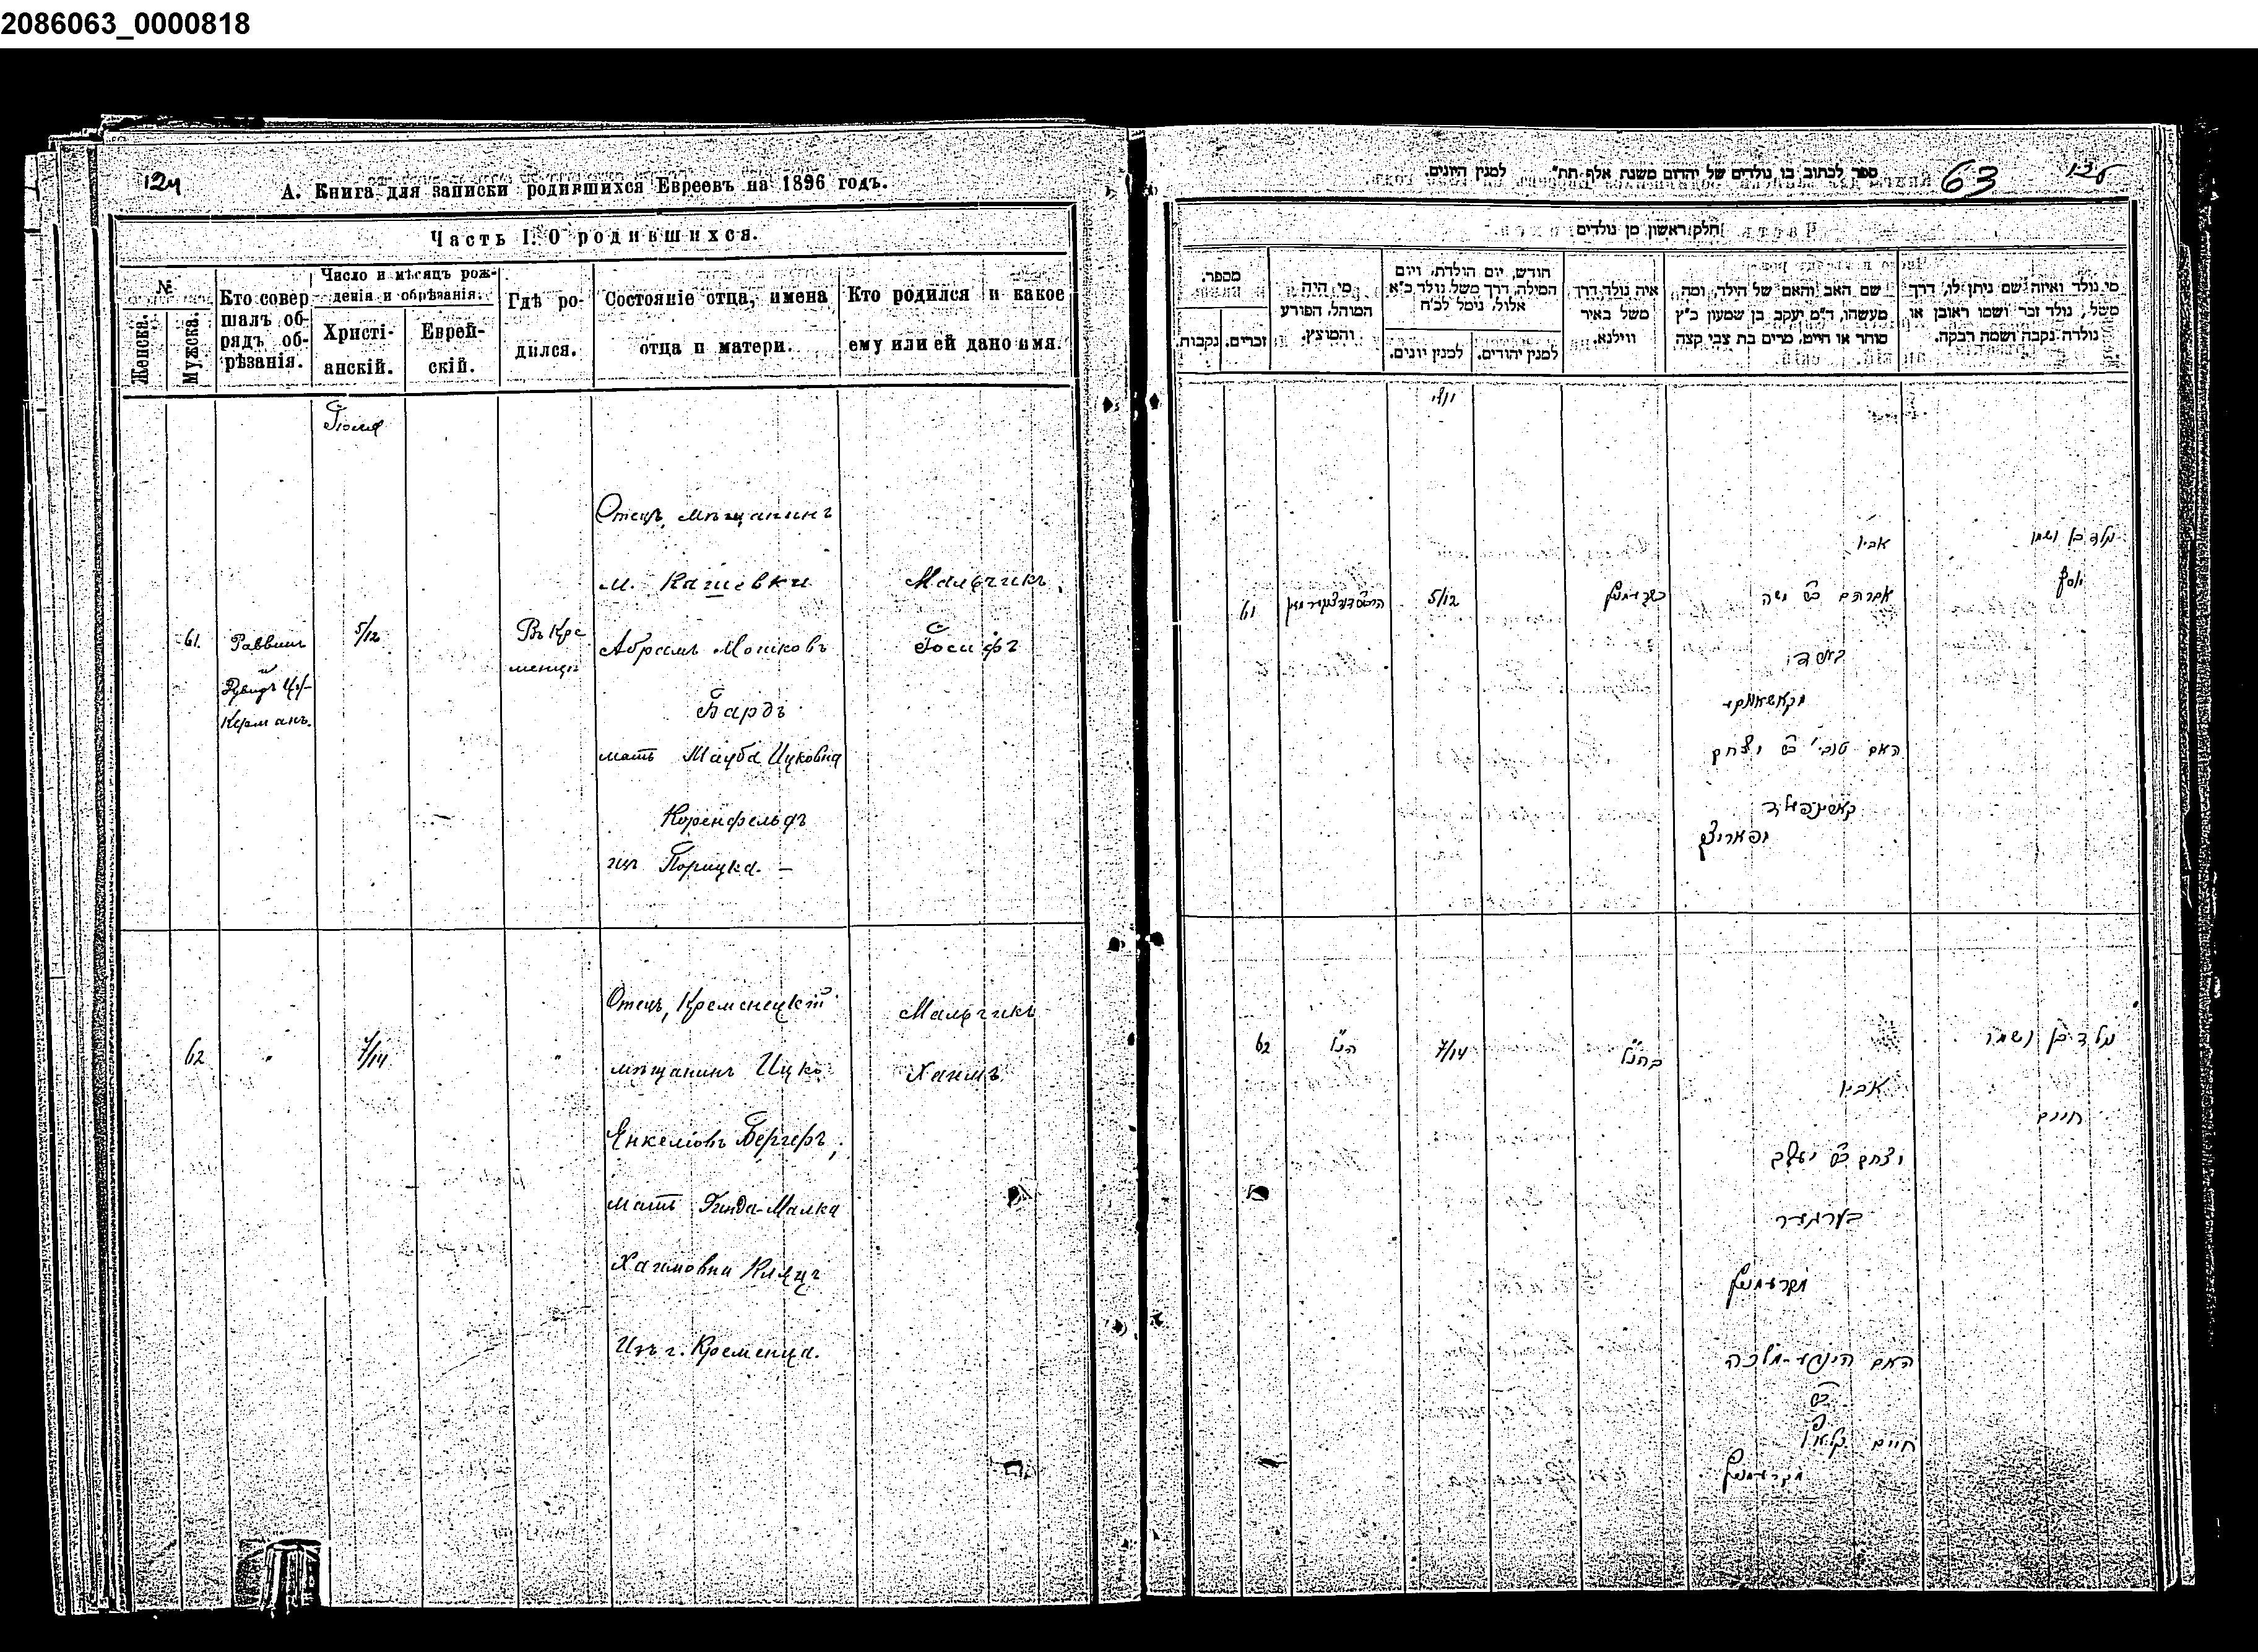 2086063_0000818
124
А. Книга для записки родившихся Евреевъ на 1896 годъ.
Часть I. О родившихся.
№
Женска.
Мужска.
Кто совер
шалъ об-
рядъ об-
рѣзанія.
Число и мѣсяцъ рож-
денія и обрѣзанія.
Христі-
анскій.
Еврей-
скій.
Гдѣ ро-
дился.
Состояніе отца, имена
отца и матери.
Кто родился и какое
ему или ей дано имя.
61.
Раввинъ
и
5/12
Въ Кре
менцѣ
Отецъ, мѣщанинъ
м. Кашевки
Абрамъ Мошковъ
Бардъ
мать Тауба Ицковна
Коренфельдъ
изъ Порицка. —
Мальчикъ
Іосифъ
62
"
7/14
"
Отецъ, Кременецкій
мѣщанинъ Ицко
Енкелiовъ Бергеръ,
мать Гинда-Малка
Хаимовна Кляцъ
Изъ г. Кременца.
Мальчикъ
Хаимъ
ספר לכתוב בו נולדים של יהדום משנת אלף תת" למנין היונים.
63
חלק ראשון מן נולדים
מספר.
זכרים.
נקבות.
מי היה
המוהל, הפורע
והמוצץ.
חודש, יום הולדת, ויום
המילה, דרך משל נולד כ"א
אלול, נימל לכ"ח
למנין יונים.
למנין יהודים.
איה נולד דרך
משל באיר
ווילנא.
שם האב והאם של הילד, ומה
מעשהו, ד"מ יעקב בן שמעון כ"ץ
סוחר או חייט, מרים בת צבי קצה
מי נולד ואיזה שם ניתן לו, דרך
משל, נולד זכר ושמו ראובן או
נולדה נקבה ושמה רבקה.
יוני
61
5/12
אביו
אברהם ב"ר משה
בארד
האם טובי' ב"ר יצחק
נולד בן ושמו
יוסף
62
הנ"ל
7/14
בהנ"ל
אביו
יצחק ב"ר יעקב
בערגער
מקרעמניץ
האם הינדא-מלכה
ב"ר
חיים
מקרעמניץ
נולד בן ושמו
חיים